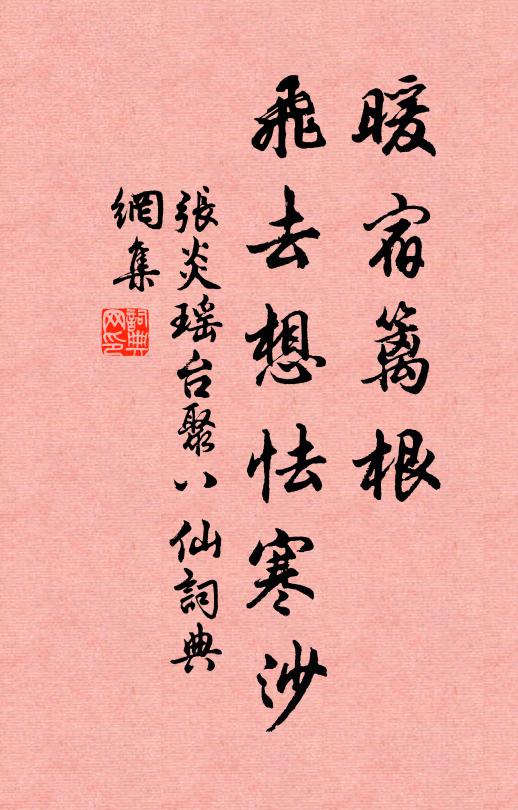 暖宿篱根
飛去想怯寒沙
張炎瑶台聚八仙詞典
網集
詞典
网印